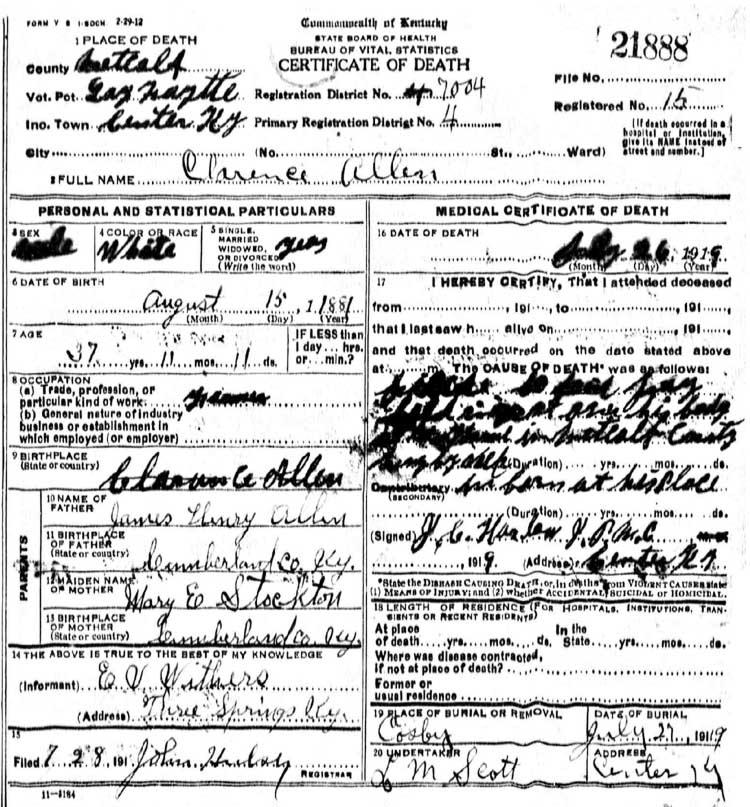 FORM V S 1-50CM 2-29-12
Commonwealth of Kentucky
STATE BOARD OF HEALTH
BUREAU OF VITAL STATISTICS
CERTIFICATE OF DEATH
21888
1 PLACE OF DEATH
County Metcalf
Vot. Pct.
Registration District No. 7004
File No.
Ino. Town Center Ky
Primary Registration District No. 4
Registered No. 15
[If death occurred in a hospital or institution, give its NAME instead of street and number.]
City (No. St., Ward)
2 FULL NAME Clarence Allen
PERSONAL AND STATISTICAL PARTICULARS
3 SEX male
4 COLOR OR RACE White
5 SINGLE, MARRIED WIDOWED, OR DIVORCED (Write the word) yes
6 DATE OF BIRTH
August 15, 1881
(Month) (Day) (Year)
7 AGE
37 yrs. 11 mos. 11 ds.
IF LESS than 1 day... hrs. or... min.?
8 OCCUPATION
(a) Trade, profession, or particular kind of work Farmer
(b) General nature of industry business or establishment in which employed (or employer)
9 BIRTHPLACE
(State or country) Clarance Allen
PARENTS
10 NAME OF FATHER James Henry Allen
11 BIRTHPLACE OF FATHER (State or country) Cumberland Co. Ky.
12 MAIDEN NAME OF MOTHER Mary E Stockton
13 BIRTHPLACE OF MOTHER (State or country) Cumberland Co. Ky.
14 THE ABOVE IS TRUE TO THE BEST OF MY KNOWLEDGE
(Informant) E. V. Withers
(Address) Three Springs Ky.
15
Filed 7 28, 191
REGISTRAR
11-3184
MEDICAL CERTIFICATE OF DEATH
16 DATE OF DEATH
July 26, 1919
(Month) (Day) (Year)
17 I HEREBY CERTIFY, That I attended deceased
from, 191, to, 191,
that I last saw h alive on, 191,
and that death occurred on the date stated above
at m. The CAUSE OF DEATH* was as follows:
held inquest over his body
in Metcalf County
(Duration) yrs. mos. ds.
Contributory in barn at his place
(SECONDARY)
(Duration) yrs. mos. ds.
(Signed) J. P. M. C.
, 1919 (Address) Center Ky
*State the DISEASE CAUSING DEATH, or, in deaths from VIOLENT CAUSES, state (1) MEANS OF INJURY; and (2) whether ACCIDENTAL, SUICIDAL or HOMICIDAL.
18 LENGTH OF RESIDENCE (FOR HOSPITALS, INSTITUTIONS, TRANSIENTS OR RECENT RESIDENTS)
At place of death yrs. mos. ds. In the State yrs. mos. ds.
Where was disease contracted, If not at place of death?
Former or usual residence
19 PLACE OF BURIAL OR REMOVAL
Cosby
DATE OF BURIAL
July 27, 1919
20 UNDERTAKER
L M Scott
ADDRESS
Center Ky